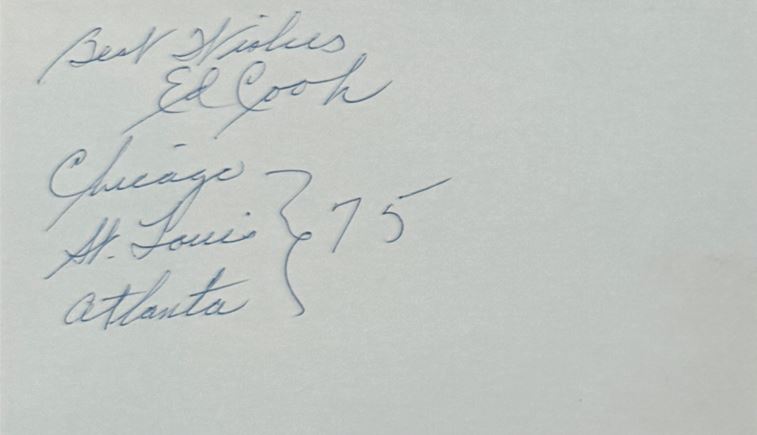 Best Wishes
Ed Cook
Chicago
St. Louis } 75
Atlanta